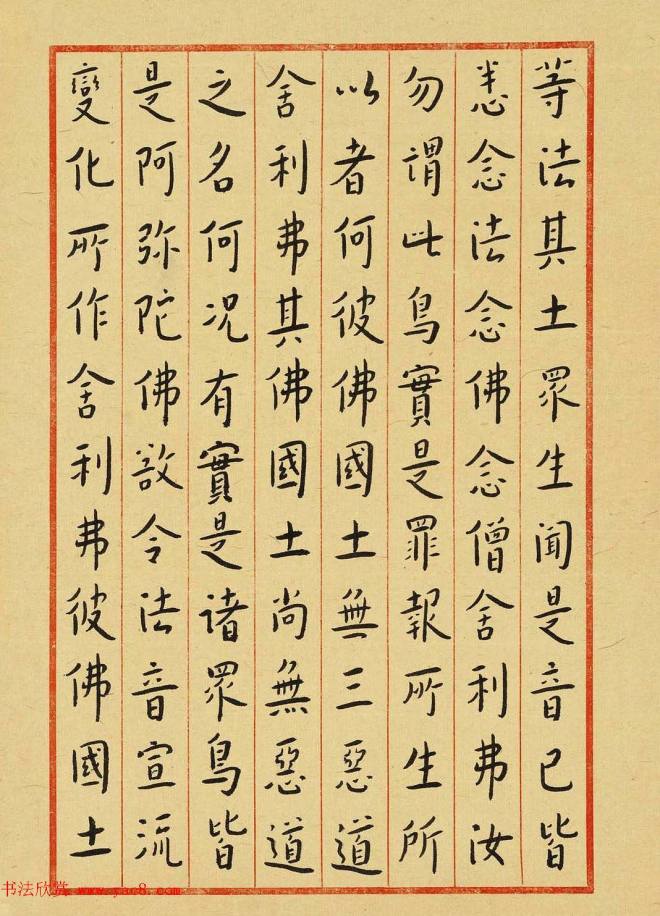 等法其土眾生闻是音已皆
悉念法念佛念僧舍利弗汝
勿謂此鳥實是罪報所生所
以者何彼佛國土無三惡道
舍利弗其佛國土尚無惡道
之名何况有實是诸眾鳥皆
是阿弥陀佛欲令法音宣流
變化所作舍利弗彼佛國土
书法欣赏 www.yac8.com